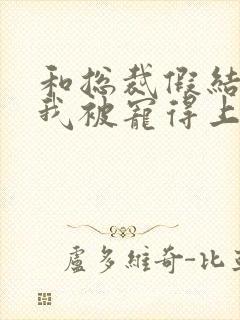 和总裁假结
我被宠得上
盧多維奇-比亞